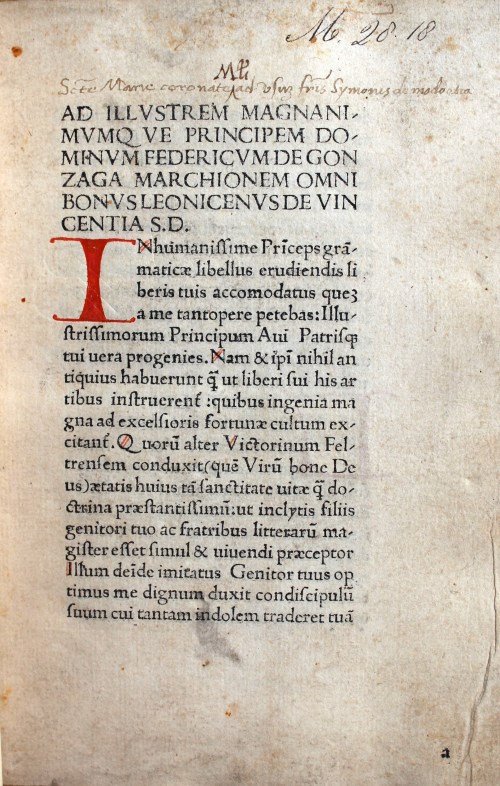 M. 28. 18
Scte Marie coronate ad usuz fris Symonis de
AD ILLVSTREM MAGNANI-
MVMQVE PRINCIPEM DO-
MINVM FEDERICVM DE GON
ZAGA MARCHIONEM OMNI
BONVS LEONICENVS DE VIN
CENTIA S.D.
INhumanissime Prīceps grā-
maticæ libellus erudiendis li
beris tuis accomodatus queꝫ
a me tantopere petebas: Illu-
strissimorum Principum Aui Patrisq;
tui uera progenies. Nam & ip̄i nihil an
tiquius habuerunt q̄ ut liberi sui his ar
tibus instruerent̄ :quibus ingenia ma
gna ad excelsioris fortunæ cultum ex-
citant̄. Quorū alter Victorinum Fel-
trensem conduxit(quē Virū bone De
us)ætatis huius tā sanctitate uitæ q̄ do-
ctrina præstantissimū: ut inclytis filiis
genitori tuo ac fratribus litterarū ma-
gister esset simul & uiuendi præceptor
Illum deīde imitatus Genitor tuus op
timus me dignum duxit condiscipulū
suum cui tantam indolem traderet tuā
a